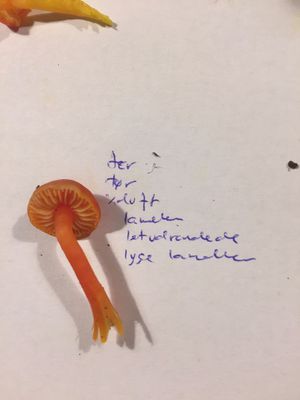 tør
% duft
lameller
let udrandede
lyse lameller